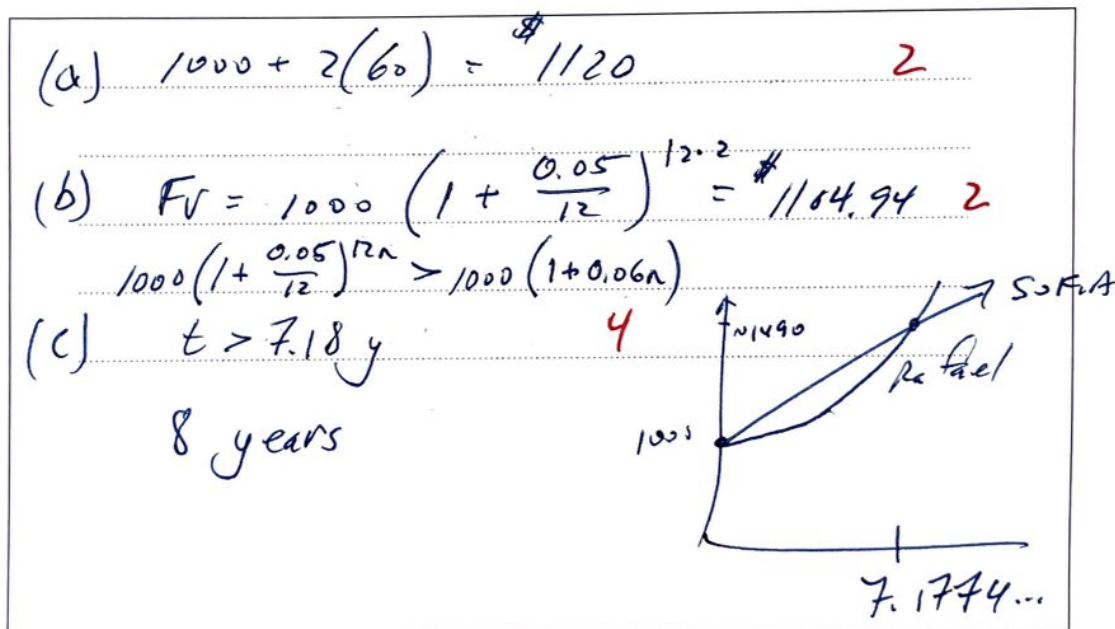 (a) 1000 + 2(60) = $1120 2
(b) FV = 1000 (1 + 0.05/12)^12·2 = $1104.94 2
1000(1 + 0.05/12)^12n > 1000(1+0.06n)
(c) t > 7.18 y 4
8 years
SOFIA
~1490
Rafael
1000
7.1774...